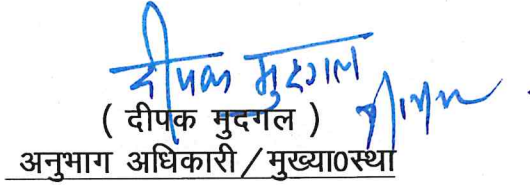 दीपक मुदगल
( दीपक मुदगल )
अनुभाग अधिकारी/मुख्या0स्था